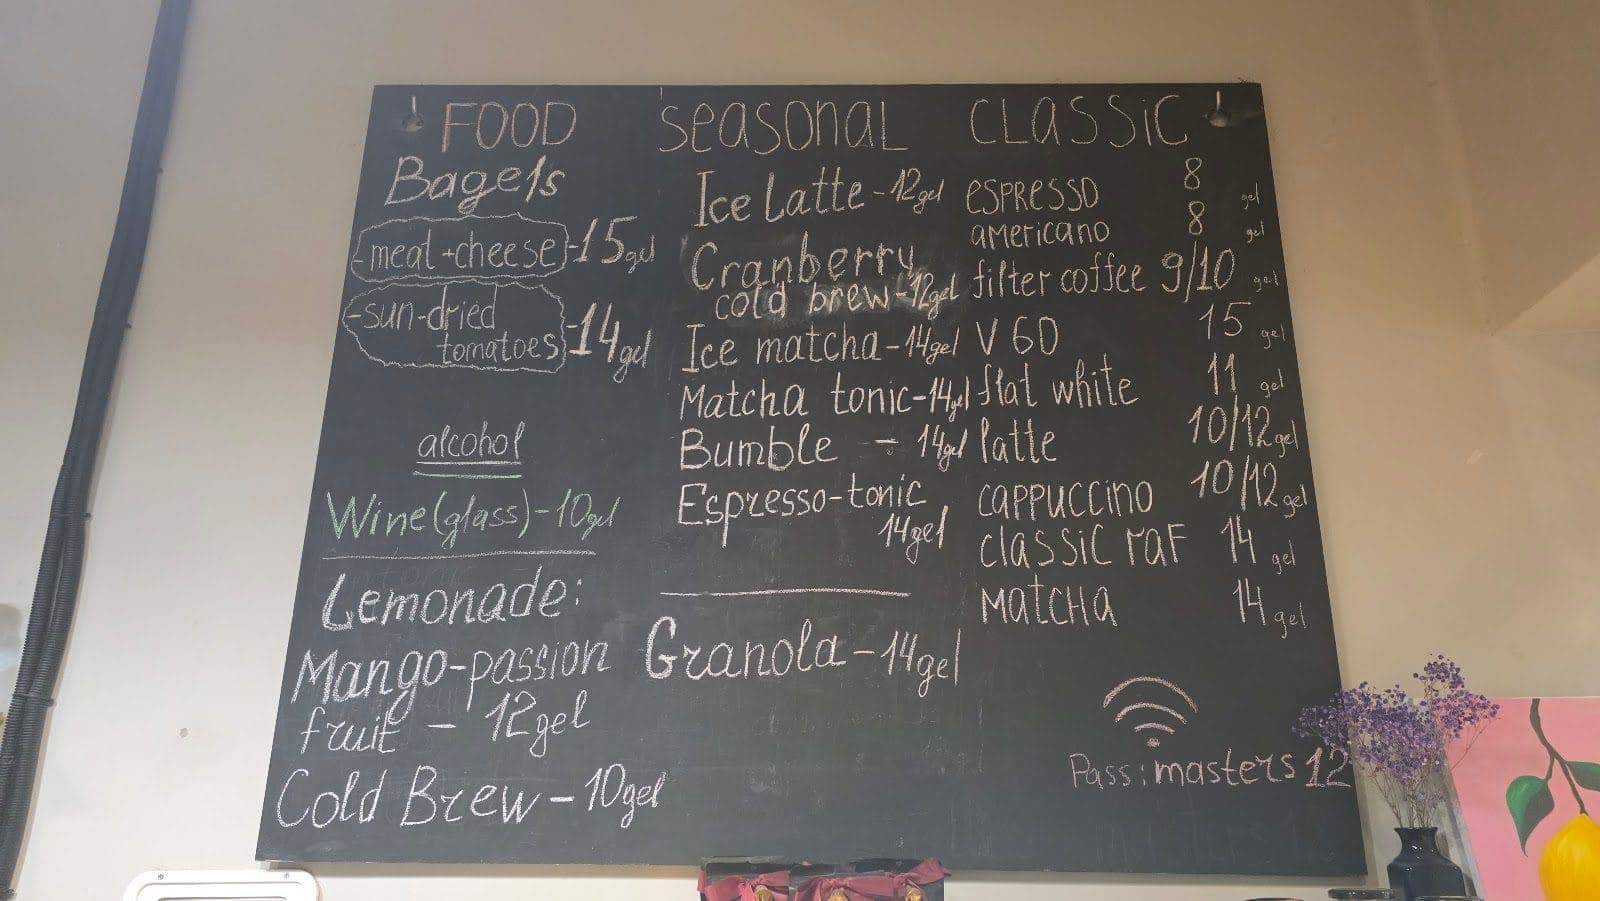 FOOD
Bagels
-meat+cheese-15gel
-sun-dried
tomatoes-14gel
alcohol
Wine(glass)-10gel
Lemonade:
Mango-passion
fruit - 12gel
Cold Brew-10gel
SEASONAL
Ice Latte-12gel
Cranberry
cold brew-12gel
Ice matcha-14gel
Matcha tonic-14gel
Bumble - 14gel
Espresso-tonic
14gel
Granola-14gel
CLASSIC
ESPRESSO 8 gel
americano 8 gel
filter coffee 9/10 gel
V60 15 gel
flat white 11 gel
latte 10/12 gel
cappuccino 10/12 gel
classic raf 14 gel
MatcHa 14 gel
Pass: masters12